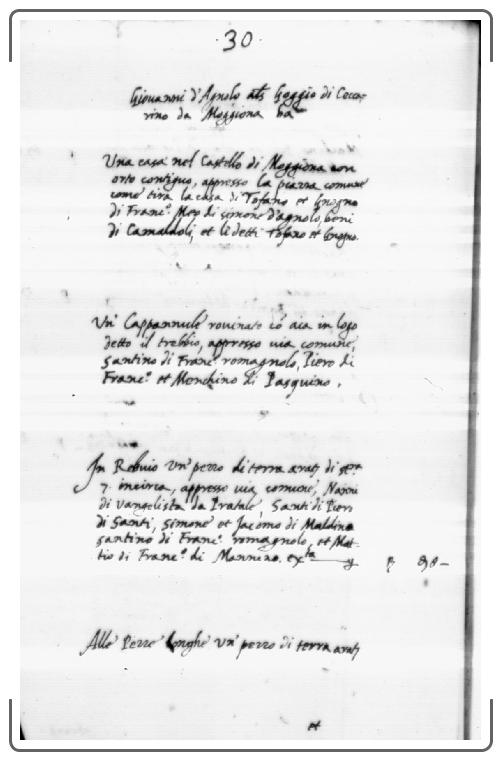 ·30·
Giovanni d'Agnolo als Goggio di Cecca-
rino da Moggiona ha
Una casa nel Castello di Moggiona con
orto contiguo, appresso la piazza comune
come tira la casa di Tofano et Gnogno
di Franc.º Meo di simone d'agnolo, beni
di Camaldoli, et li detti Tofano et Gnogno.
Un' Cappannule rovinato cō aia in logo
detto il trebbio, appresso via comune,
santino di Franc.º romagnolo, Piero di
Franc.º et Menchino di Pasquino.
In Rebuio Un' pezzo di terra arat. di
7. incirca, appresso via comune, Nanni
di Vangelista da Pratale, Santi di Piero
di Santi, Simone et Jacomo di Maldino
santino di Franc.º romagnolo, et Mat-
tio di Franc.º di Mannino. exta
Alle Pezze longhe Un' pezzo di terra arat.
et